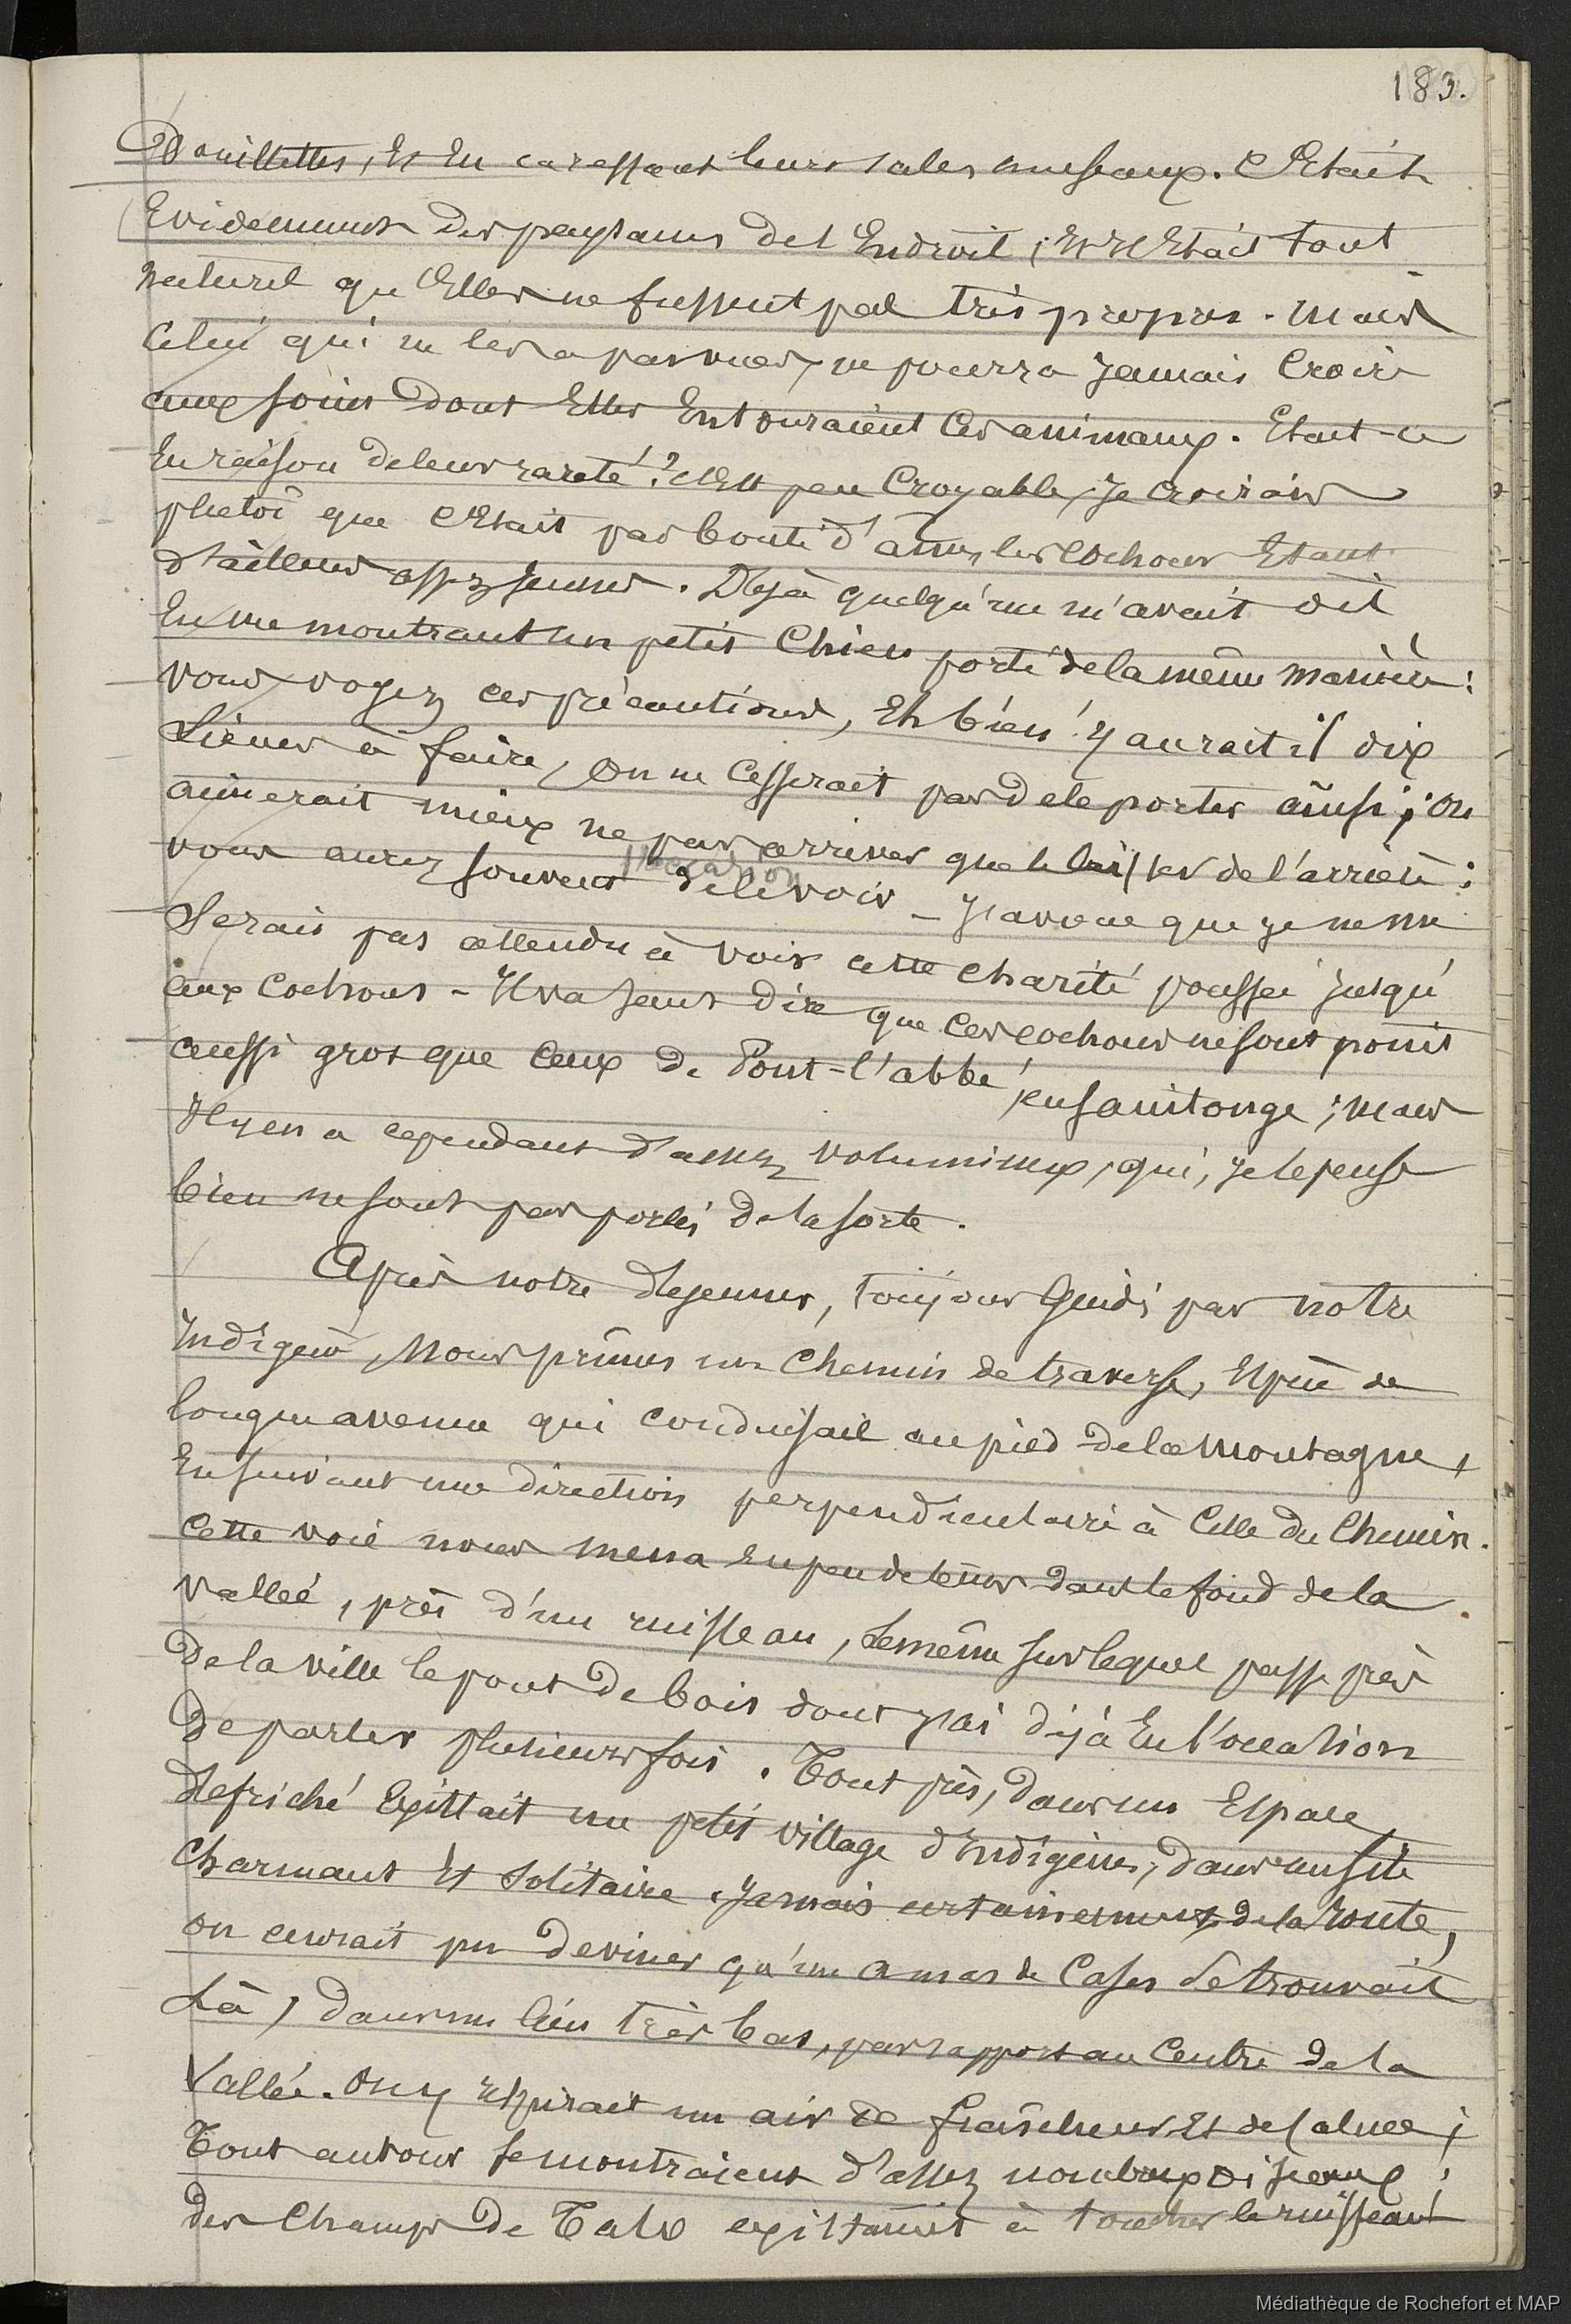 183.
Douillettes, Et En caressant leurs sales museaux. C'Etait
Evidemment des paysannes de l'Endroit ; Et Il Etait tout
naturel qu'Elles ne fussent pas très propres. Mais
Celui qui ne les a pas vues, ne pourra jamais Croire
aux soins dont Elles Entouraient Ces animaux. Etait-ce
En raison de leur rareté ? C'Est peu Croyable, je croirais
plutôt que c'Etait par bonté d'âme, les Cochons Etant
d'ailleurs assez jeunes. Dejà quelqu'un m'avait dit
En me montrant un petit Chien porté de la même manière :
Vous voyez ces précautions, Eh bien ! y aurait il dix
Lieues à faire, on ne Cesserait pas de le porter ainsi ; on
aimerait mieux ne pas arriver que le laisser de l'arrière :
l'occasion
vous aurez souvent de le voir _ J'avoue que je ne me
Serais pas attendu à voir cette charité poussée jusqu'
aux Cochons - Il va sans dire que Ces cochons ne sont point
aussi gros que Ceux de Pont-l'abbé, en saintonge ; mais
Il y en a cependant d'assez volumineux, qui, je le pense
bien ne sont pas portés de la sorte.
Après notre déjeuner, toujours Guidés par notre
Indigène, Nous prîmes un Chemin de traverse, Espèce de
longue avenue qui Conduisait au pied de la Montagne,
En suivant une direction perpendiculaire à Celle du Chemin.
Cette voie nous mena En peu de tems dans le fond de la
vallée, près d'un ruisseau, Le même sur lequel passe près
De la ville le pont de bois dont j'ai déjà Eu l'occasion
De parler plusieurs fois. Tout près, dans un Espace
défriché Existait un petit village d'Indigènes, dans un site
Charmant Et Solitaire. Jamais certainement de la Route,
on aurait pu deviner qu'un amas de Cases Se trouvait
Là, dans un lieu très bas, par rapport au Centre de la
Vallée. On y respirait un air de fraîcheur Et de Calme ;
Tout autour se montraient d'assez nombreux oiseaux ;
Des Champs de Talo existaient à toucher le ruisseau
Médiathèque de Rochefort et MAP